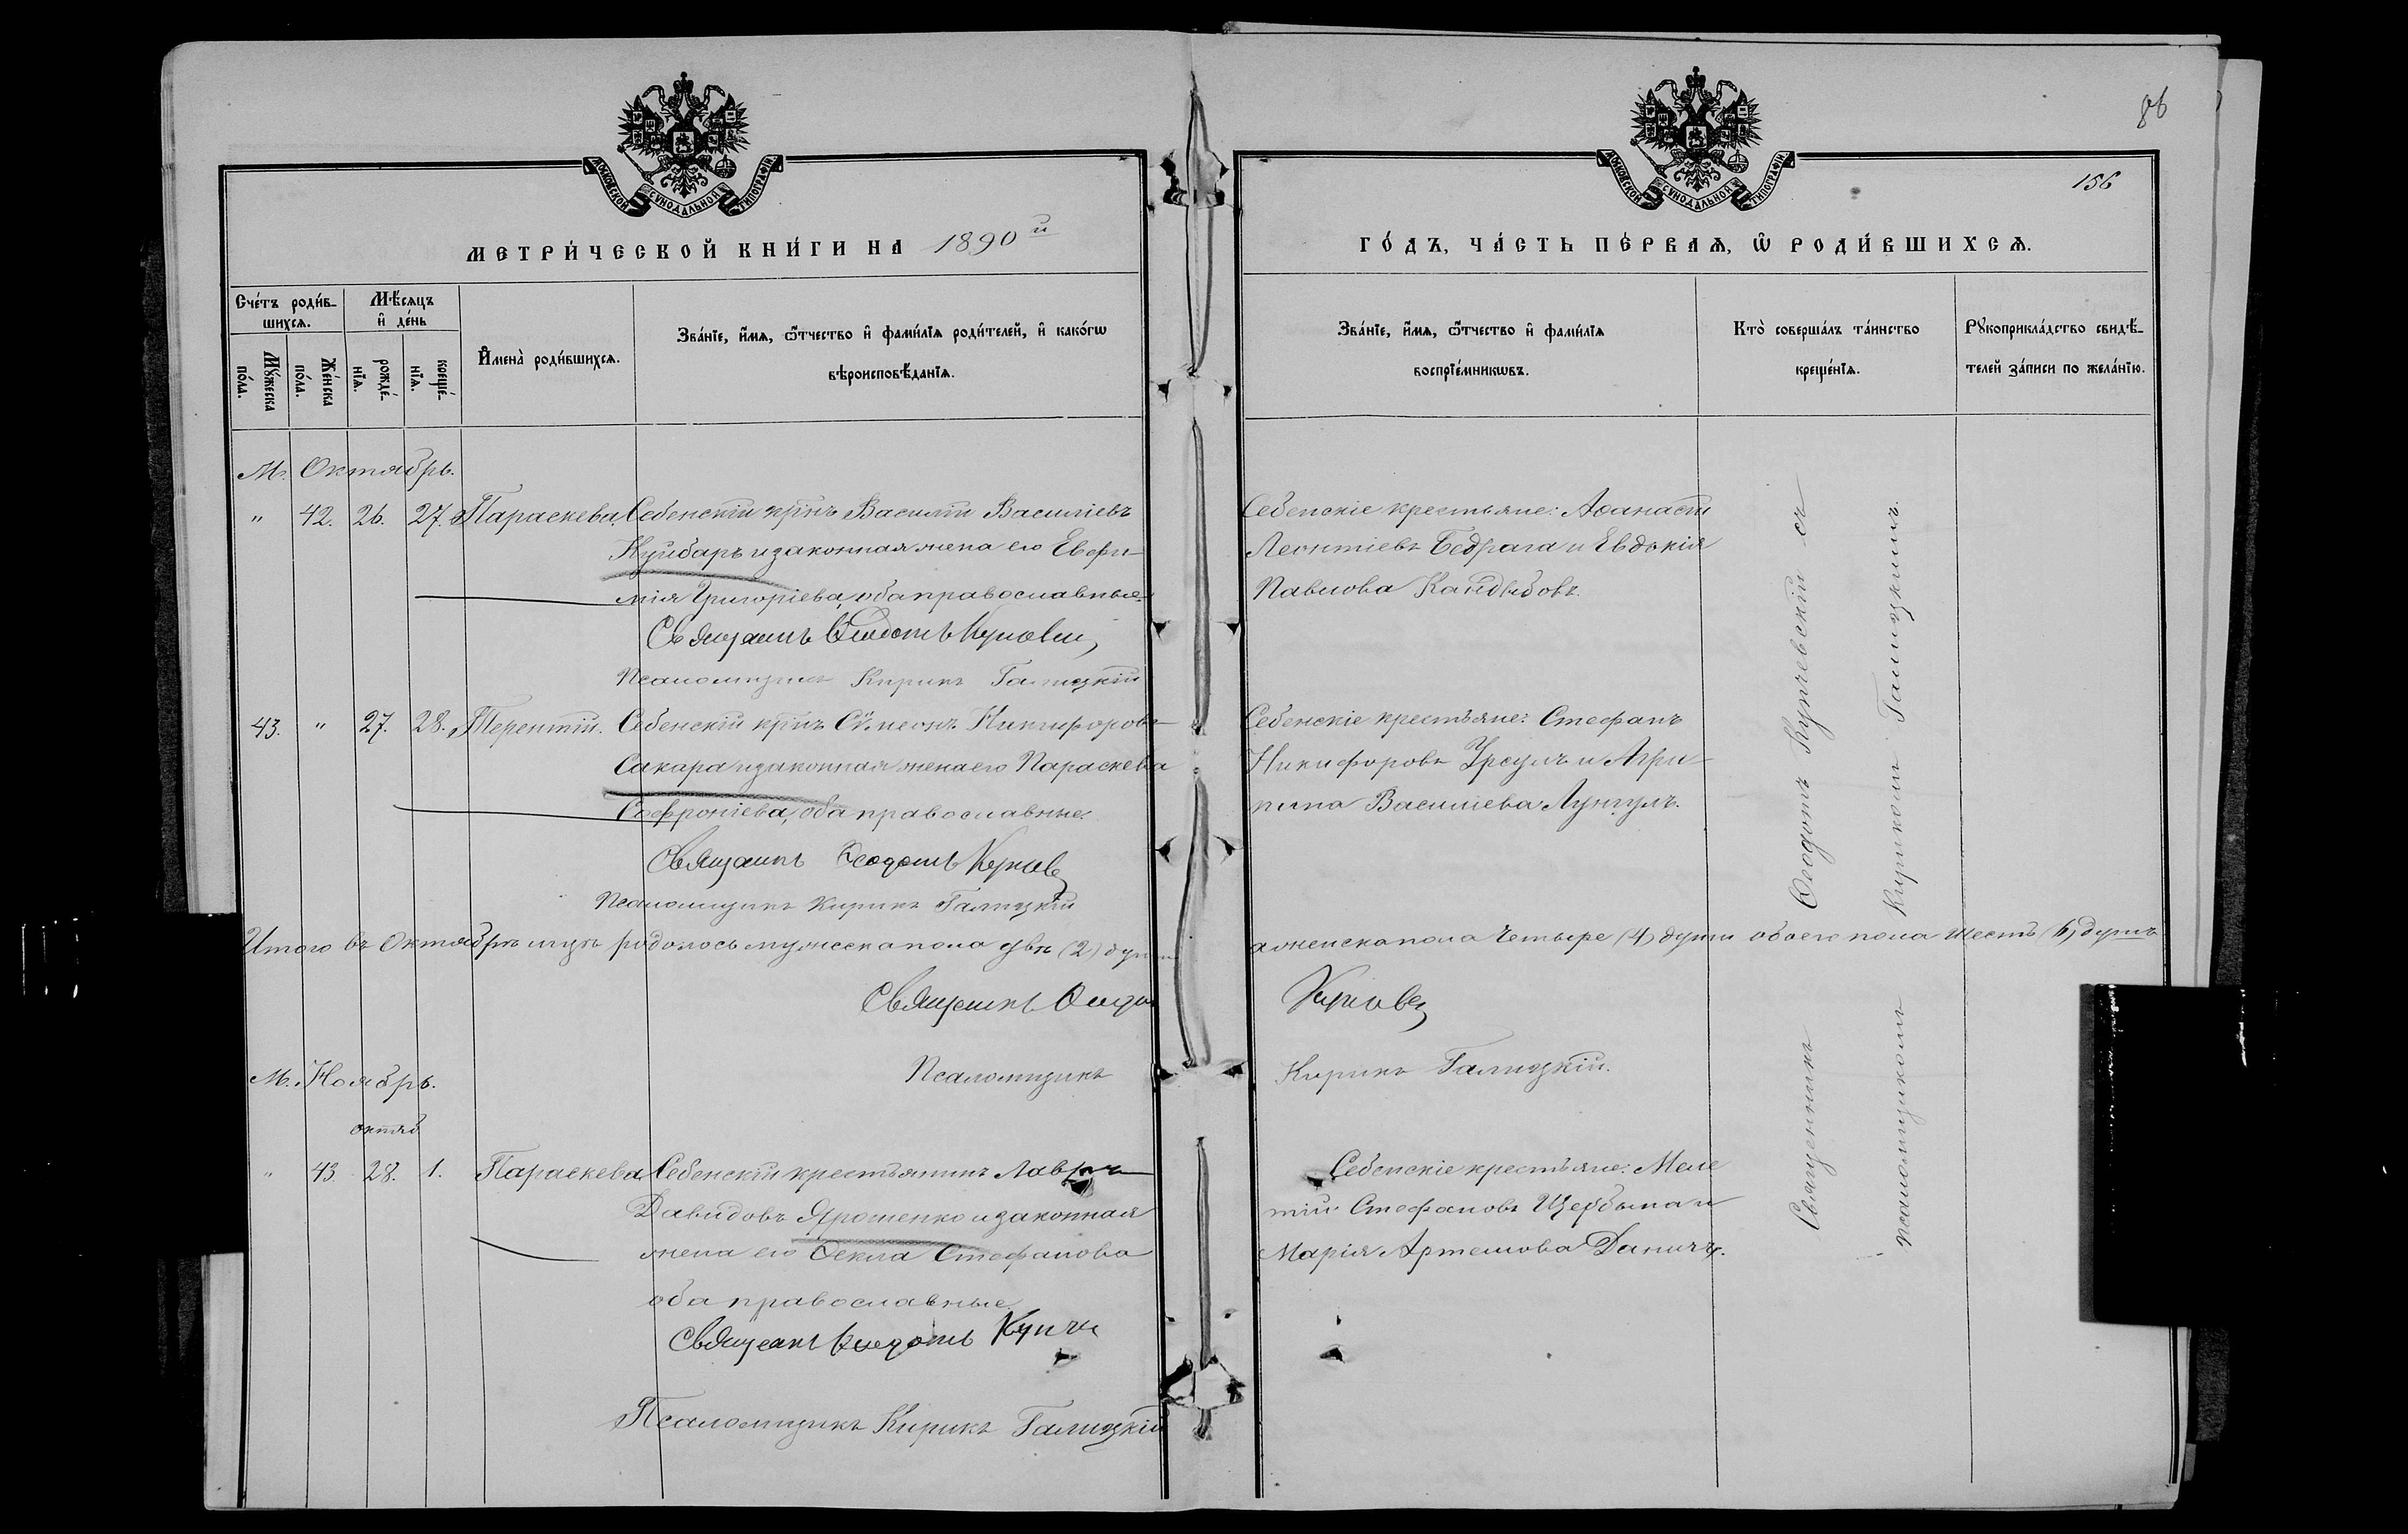 86
156
МОСКОВСКОЙ СѴНОДАЛЬНОЙ ТИПОГРАФІИ
МОСКОВСКОЙ СѴНОДАЛЬНОЙ ТИПОГРАФІИ
МЕТРИ́ЧЕСКОЙ КНИ́ГИ НА 1890й
ГО́ДЪ, ЧА́СТЬ ПЕ́РВАѦ, Ѡ҆ РОДИ́ВШИХСѦ.
Сче́тъ роди́в-
шихсѧ.
Мꙋ́жеска
по́ла.
Же́нска
по́ла.
Мѣ́сѧцъ
и҆ де́нь
рожде́-
нїѧ.
креще́-
нїѧ.
И҆мена̀ роди́вшихсѧ.
Зва́нїе, и҆́мѧ, ѻ҆́тчество и҆ фами́лїѧ роди́телей, и҆ како́гѡ
вѣроисповѣ́данїѧ.
Зва́нїе, и҆́мѧ, ѻ҆́тчество и҆ фами́лїѧ
воспрїе́мникѡвъ.
Кто̀ соверша́лъ та́инство
креще́нїѧ.
Рꙋкоприкла́дство свидѣ́-
телей за́писи по жела́нїю.
М. Октябрь.
" 42. 26. 27. Параскева Себенскій крнъ Василій Василіевъ
Куйбаръ и законная жена его Евфи-
мія Григоріева, оба православные.
Священникъ Ѳеодотъ
Псаломщикъ Кирикъ Галицкій
Себенскіе крестьяне: Аѳанасій
Леонтіевъ Бедрага и Евдокія
Павлова Кайдыбовъ.
43. " 27. 28. Терентій. Себенскій крнъ Сѵмеонъ Никифоровъ
Сакара и законная жена его Параскева
Софроніева, оба православные.
Священникъ Ѳеодотъ
Псаломщикъ Кирикъ Галицкій
Себенскіе крестьяне: Стефанъ
Никифоровъ Урсулъ и Агри-
пина Василіева Лунгулъ.
Итого въ Октябрѣ мцѣ родилось мужеска пола двѣ (2) души
а женска пола четыре (4) души обоего пола шесть (6) душъ
Священникъ
Псаломщикъ Кирикъ Галицкій.
М. Ноябрь.
октяб
" 43. 28. 1. Параскева Себенскій крестьянинъ Лавръ
Давидовъ Ярошенко и законная
жена его Ѳекла Стефанова
оба православные.
Священникъ Ѳеодотъ
Псаломщикъ Кирикъ Галицкій
Себенскіе крестьяне: Меле
тій Стефановъ Щербына и
Марія Артемова Даничъ.
Священникъ Ѳеодотъ Купчевскій съ
псаломщикомъ Кирикомъ Галицкимъ.